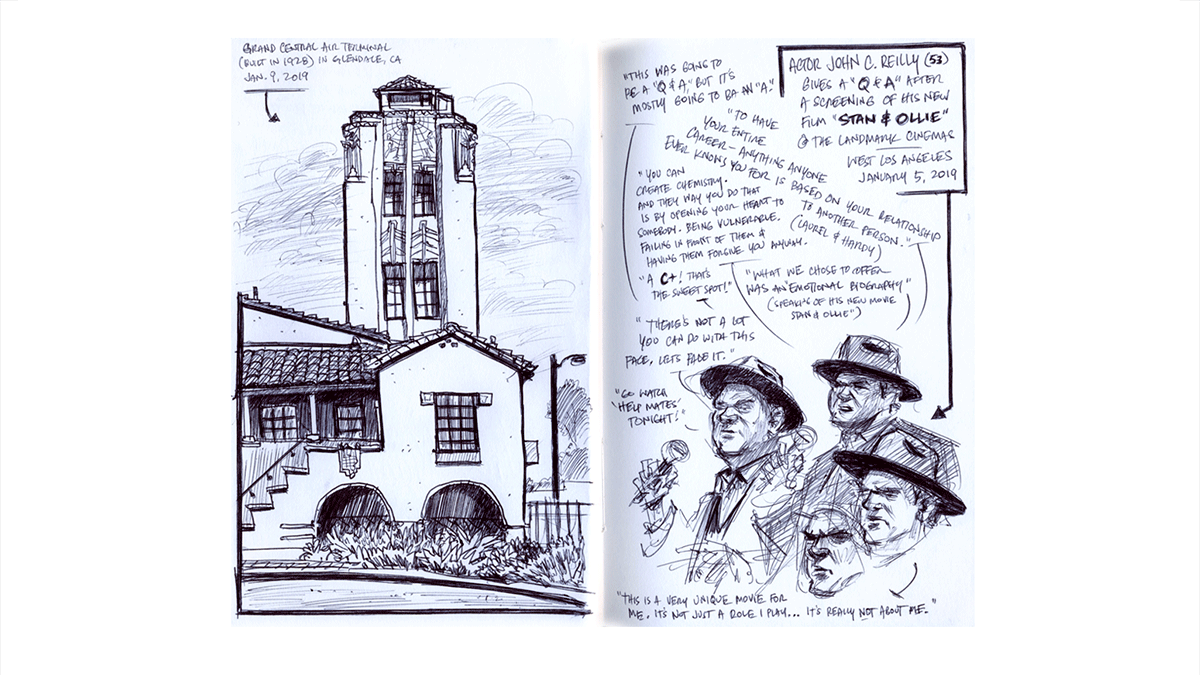 GRAND CENTRAL AIR TERMINAL
(BUILT IN 1928) IN GLENDALE, CA
JAN. 9, 2019
"THIS WAS GOING TO
BE A "Q & A," BUT IT'S
MOSTLY GOING TO BA AN "A."
ACTOR JOHN C. REILLY (53)
GIVES A "Q & A" AFTER
A SCREENING OF HIS NEW
FILM "STAN & OLLIE"
@ THE LANDMARK CINEMAS
WEST LOS ANGELES
JANUARY 5, 2019
"TO HAVE
YOUR ENTIRE
CAREER – ANYTHING ANYONE
EVER KNOWS YOU FOR IS BASED ON YOUR RELATIONSHIP
TO ANOTHER PERSON."
(LAUREL & HARDY)
"YOU CAN
CREATE CHEMISTRY.
AND THEY WAY YOU DO THAT
IS BY OPENING YOUR HEART TO
SOMEBODY. BEING VULNERABLE.
FAILING IN FRONT OF THEM &
HAVING THEM FORGIVE YOU ANYWAY.
"A C+! THAT'S
THE SWEET SPOT!"
"WHAT WE CHOSE TO OFFER
WAS AN EMOTIONAL BIOGRAPHY"
(SPEAKING OF HIS NEW MOVIE
STAN & OLLIE")
"THERE'S NOT A LOT
YOU CAN DO WITH THIS
FACE, LETS FACE IT."
"GO WATCH
'HELP MATES'
TONIGHT!"
"THIS IS A VERY UNIQUE MOVIE FOR
ME. IT'S NOT JUST A ROLE I PLAY... IT'S REALLY NOT ABOUT ME."